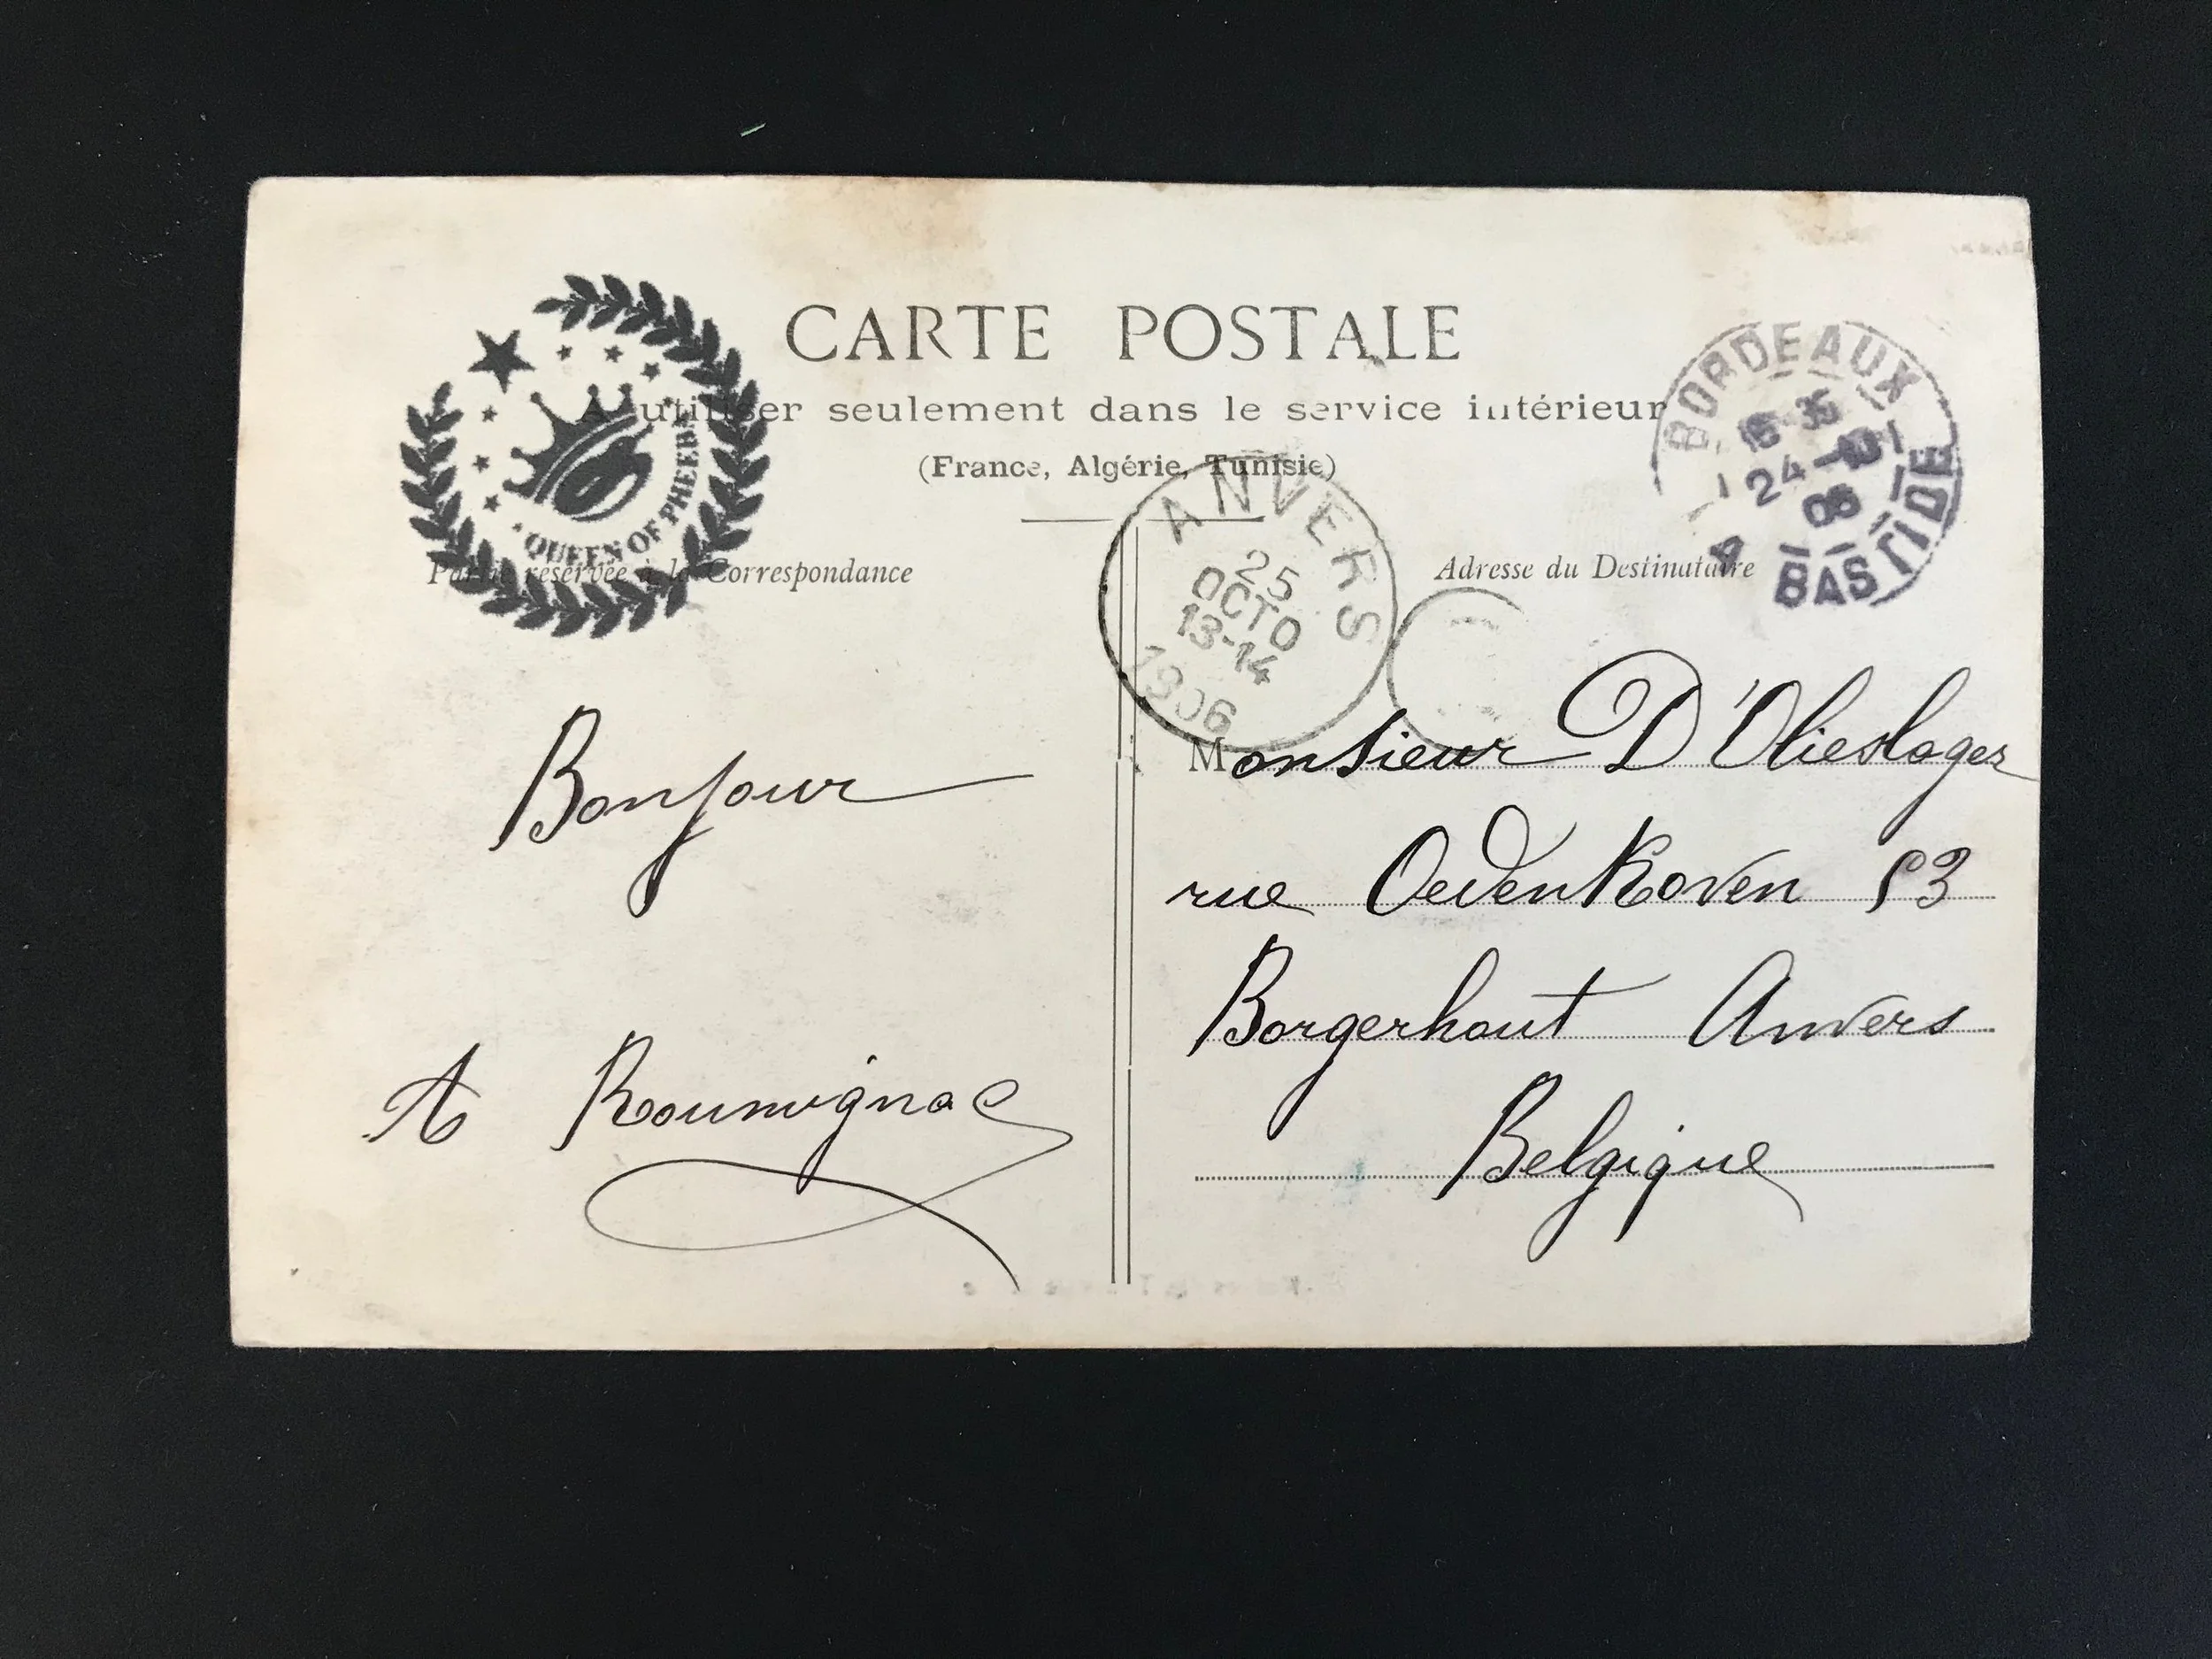 CARTE POSTALE
A utiliser seulement dans le service intérieur
(France, Algérie, Tunisie)
QUEEN OF PHEEBA
BORDEAUX
16 35
24-10
06
BASTIDE
ANVERS
25
OCTO
13-14
1906
Partie réservée à la Correspondance
Adresse du Destinataire
Bonjour
A Roumignac
Monsieur D'Olieslager
rue OedenKoven 53
Borgerhout Anvers
Belgique